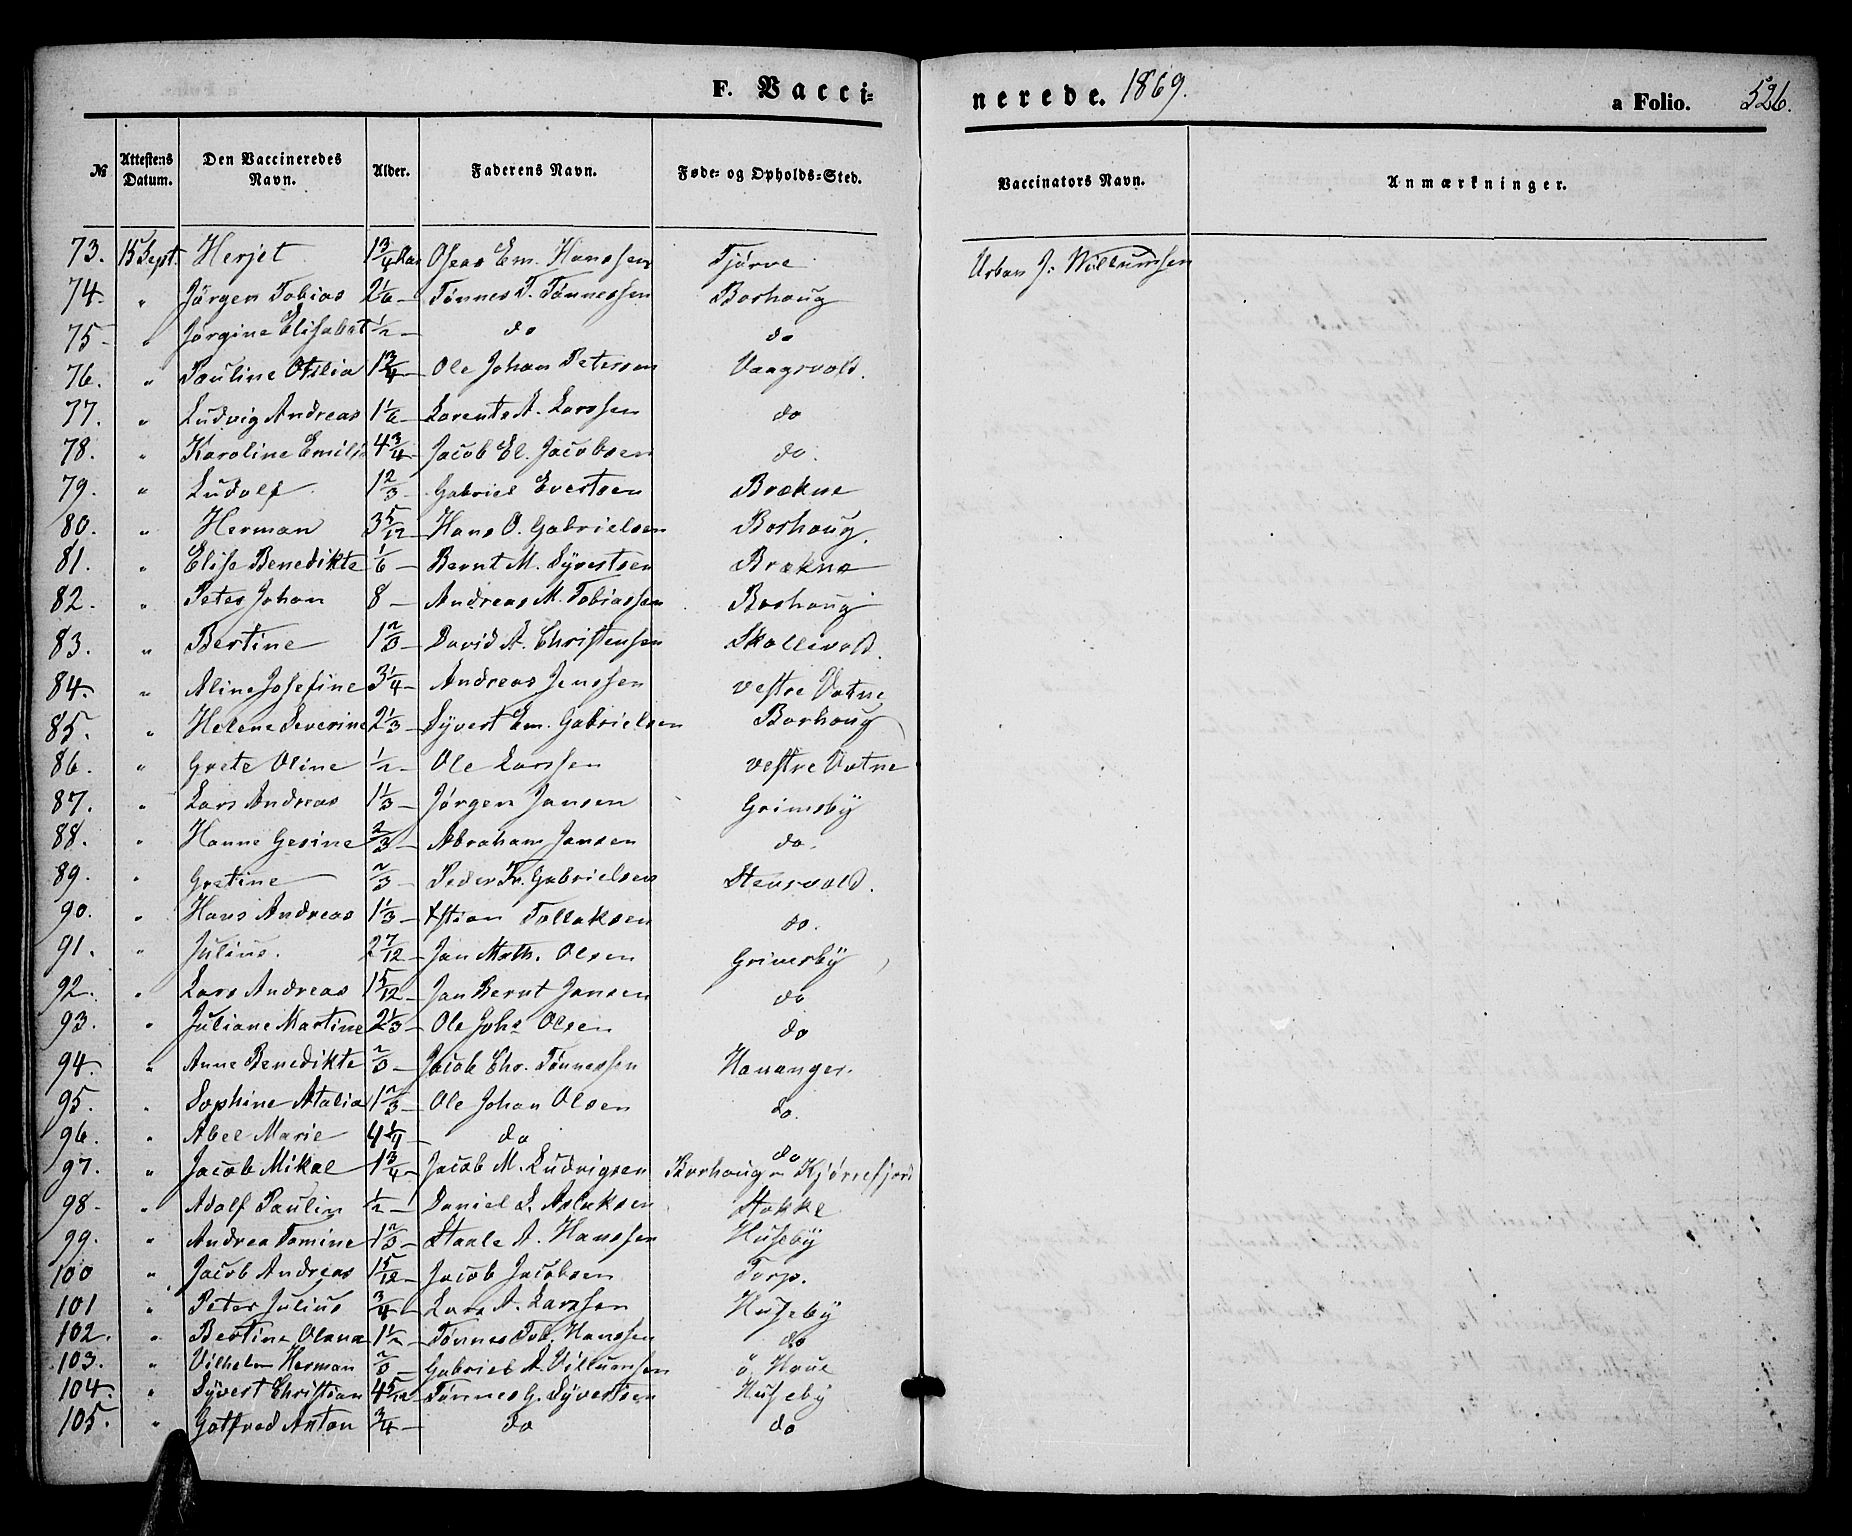 F. Vacci-
nerede. 1869.
a Folio. 526.
№ Attestens Datum. Den Vaccineredes Navn. Alder. Faderens Navn. Føde- og Opholds-Sted. Vaccinators Navn. Anmærkninger.
73. 15 Sept. Herjet 1 3/4 Aar Oseas Em. Hanssen Tjørve Urban J. Willumsen
74. " Jørgen Tobias 2 1/6 - Tønnes T. Tønnessen Borhaug
75 " Jørgine Elisabet 1/2 - do do
76. " Pauline Otilia 1 3/4 - Ole Johan Petersen Vaagsvold.
77. " Ludvig Andreas 1 1/6 - Lorents A. Larssen do
78. " Karoline Emilie 4 3/4 - Jacob El. Jacobsen do.
79. " Ludolf 1 2/3 - Gabriel Evertsen Brækne
80. " Herman 3 5/12 - Hans O. Gabrielsen Borhaug.
81. " Elise Benedikte 1/6 - Bernt M. Syvertsen Brækne
82. " Peter Johan 8 - Andreas M. Tobiassen Borhaug
83. " Bertine 1 2/3 - David A. Christensen Skollevold.
84. " Aline Josefine 3 1/4 - Andreas Jenssen vestre Vatne
85. " Helene Severine 2 1/3 - Syvert Em. Gabrielsen Borhaug
86. " Grete Oline 1/2 - Ole Larssen vestre Vatne
87. " Lars Andreas 1 1/3 - Jørgen Jansen Grimsby
88. " Hanne Gesine 2/3 - Abraham Jansen do.
89. " Gretine 2/3 - Peder Fr. Gabrielsen Stensvold.
90. " Hans Andreas 1 1/3 - Xstian Tollaksen do.
91. " Julius. 2 7/12 - Jan Math. Olsen Grimsby
92. " Lars Andreas 1 5/12 - Jan Bernt Jansen do
93. " Juliane Martine 2 1/3 - Ole Johs Olsen do
94. " Anne Benedikte 2/3 - Jacob Chr. Tønnessen Hananger.
95. " Sophine Atalia 1 2/3 - Ole Johan Olsen do.
96. " Abel Marie 4 1/4 - do do
97. " Jacob Mikal 1 3/4 - Jacob M. Ludvigsen Borhaug Kjørrefjord
98. " Adolf Paulin 1/2 - Daniel L. Aslaksen Stokke
99. " Andrea Tomine 1 2/3 - Staale A. Hanssen Huseby
100 " Jacob Andreas 1 5/12 - Jacob Jacobsen Torp.
101 " Peter Julius 3/4 - Lars A. Larssen Huseby
102. " Bertine Olana 1 1/2 - Tønnes Tob. Hanssen do
103. " Vilhelm Herman 2/3 - Gabriel A. Villumsen ø. Haue
104. " Syvert Christian 4 5/12 - Tønnes G. Syvertsen Huseby
105. " Gotfred Anton 3/4 - do do